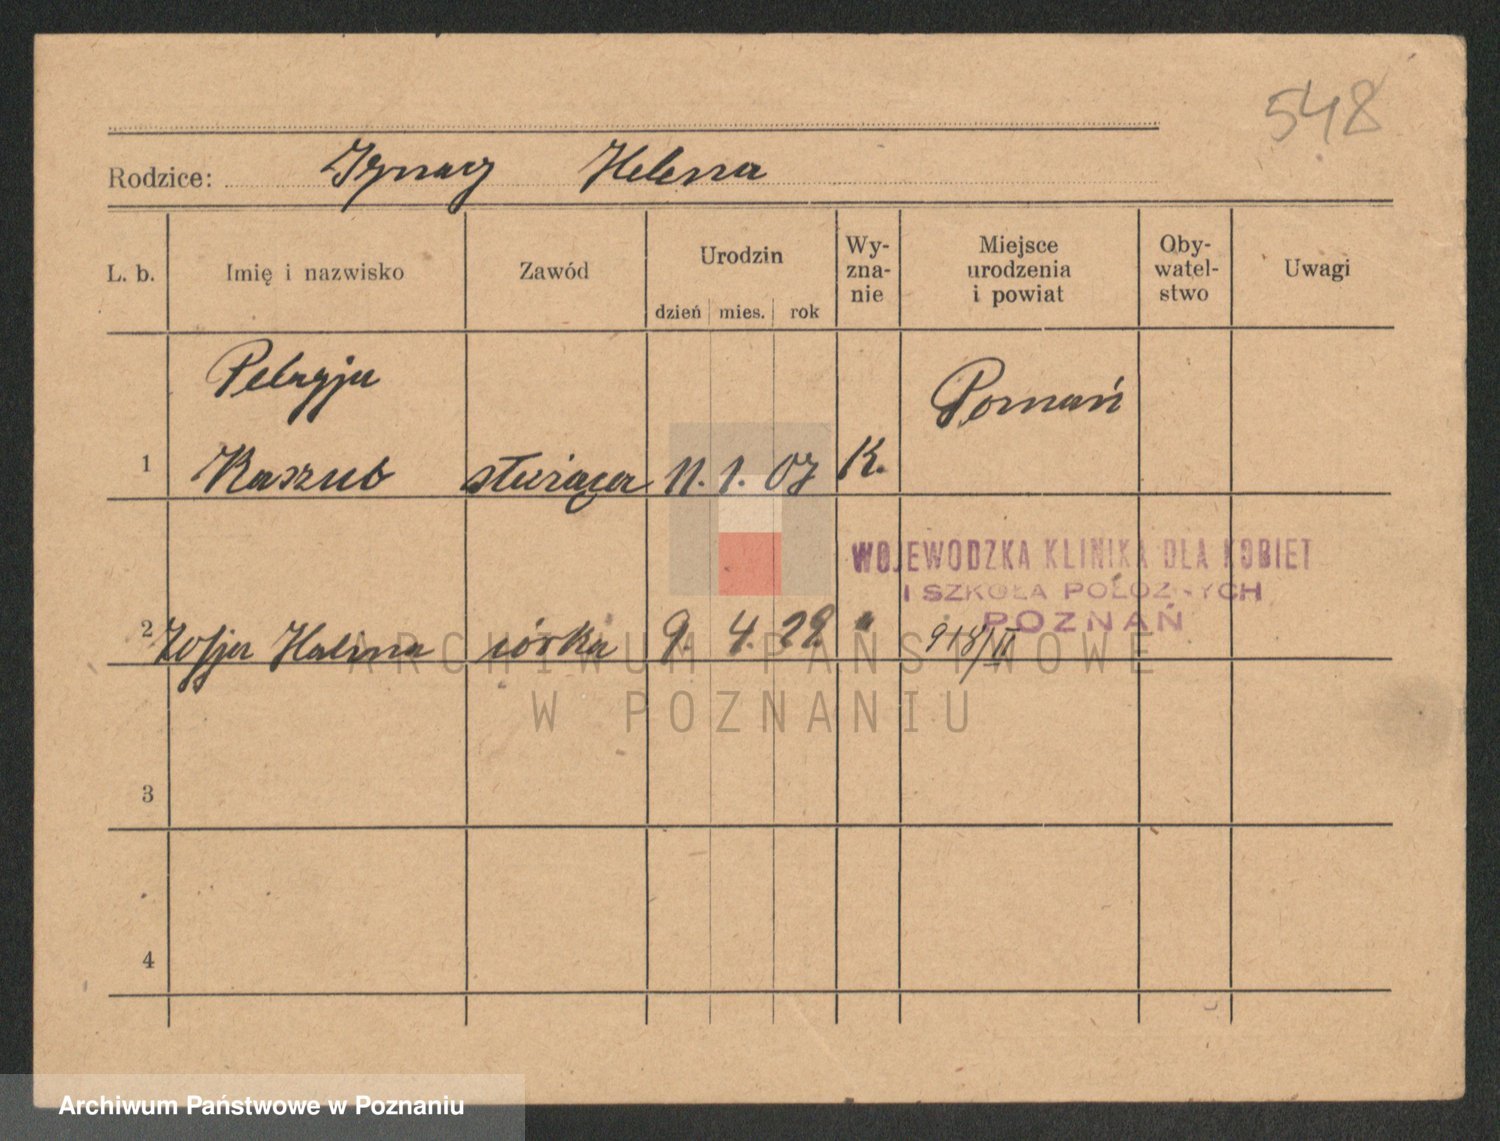 548
Rodzice: Ignacy Helena
L. b. Imię i nazwisko Zawód Urodzin Wy-zna-nie Miejsce urodzenia i powiat Oby-watel-stwo Uwagi
dzień mies. rok
Pelagja Poznań
1 Kaszub służąca 11. 1. 07 K.
WOJEWÓDZKA KLINIKA DLA KOBIET
I SZKOŁA POŁOŻNYCH
POZNAŃ
2 Zofja Halina córka 9. 4. 29. " 918/II
ARCHIWUM PAŃSTWOWE
W POZNANIU
3
4
Archiwum Państwowe w Poznaniu